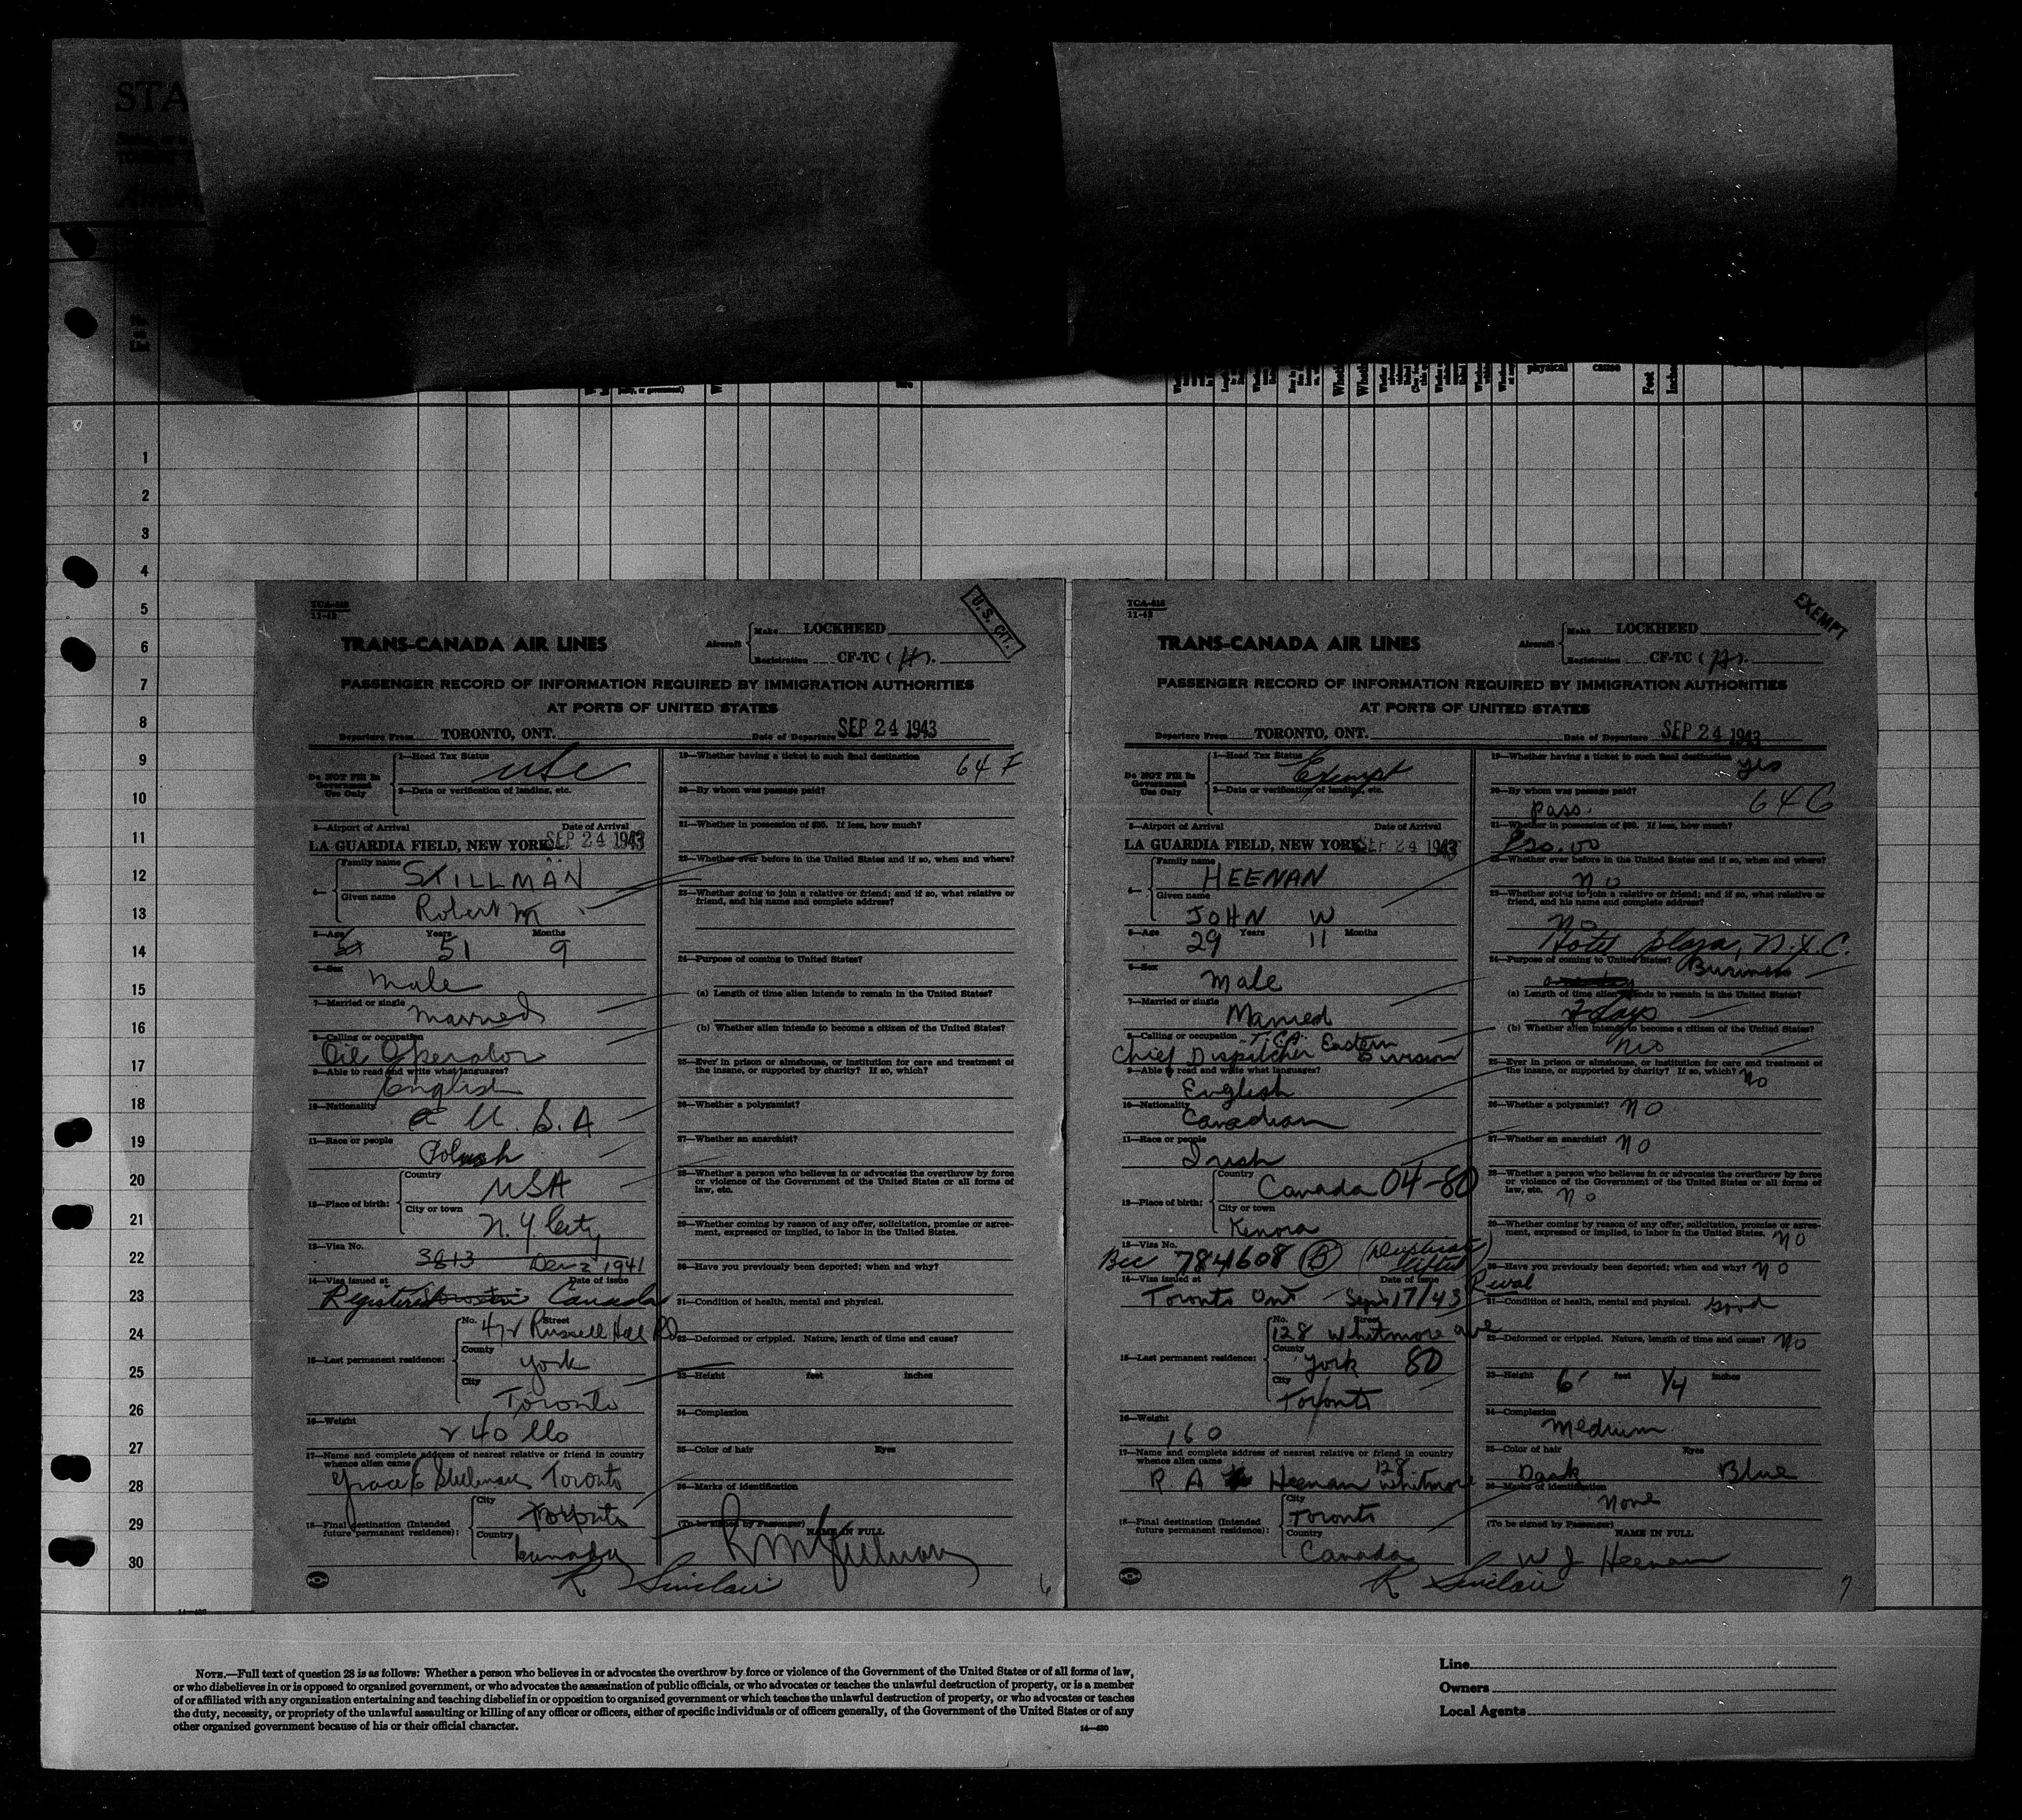 STA
physical
cause
Feet
Inches
1
2
3
4
5
6
7
8
9
10
11
12
13
14
15
16
17
18
19
20
21
22
23
24
25
26
27
28
29
30
11-43
U.S. CIT.
TRANS-CANADA AIR LINES
Aircraft
Make LOCKHEED
Registration CF-TC (H).
PASSENGER RECORD OF INFORMATION REQUIRED BY IMMIGRATION AUTHORITIES
AT PORTS OF UNITED STATES
Departure From TORONTO, ONT. Date of Departure SEP 24 1943
Do NOT Fill In Government Use Only
1—Head Tax Status
USC
2—Data or verification of landing, etc.
3—Airport of Arrival Date of Arrival
LA GUARDIA FIELD, NEW YORK SEP 24 1943
4— Family name STILLMAN
Given name Robert M
5—Age Years 51 Months 9
6—Sex
Male
7—Married or single
Married
8—Calling or occupation
Oil Operator
9—Able to read and write what languages?
English
10—Nationality
U.S.A
11—Race or people
Polish
12—Place of birth: Country USA
City or town N.Y. City
13—Visa No. 3813 Dec 2 1941
14—Visa issued at Date of issue
Registered Canada
15—Last permanent residence: No. Street Russell Hill Rd
County York
City Toronto
16—Weight
240 lbs
17—Name and complete address of nearest relative or friend in country whence alien came
Grace Toronto
18—Final destination (Intended future permanent residence): City Toronto
Country Canada
19—Whether having a ticket to such final destination
64 F
20—By whom was passage paid?
21—Whether in possession of $50. If less, how much?
22—Whether ever before in the United States and if so, when and where?
23—Whether going to join a relative or friend; and if so, what relative or
friend, and his name and complete address?
24—Purpose of coming to United States?
(a) Length of time alien intends to remain in the United States?
(b) Whether alien intends to become a citizen of the United States?
25—Ever in prison or almshouse, or institution for care and treatment of
the insane, or supported by charity? If so, which?
26—Whether a polygamist?
27—Whether an anarchist?
28—Whether a person who believes in or advocates the overthrow by force
or violence of the Government of the United States or all forms of
law, etc.
29—Whether coming by reason of any offer, solicitation, promise or agree-
ment, expressed or implied, to labor in the United States.
30—Have you previously been deported; when and why?
31—Condition of health, mental and physical.
32—Deformed or crippled. Nature, length of time and cause?
33—Height feet inches
34—Complexion
35—Color of hair Eyes
36—Marks of identification
(To be signed by Passenger) NAME IN FULL
R Sinclair
6
11-43
EXEMPT
TRANS-CANADA AIR LINES
Aircraft
Make LOCKHEED
Registration CF-TC (H).
PASSENGER RECORD OF INFORMATION REQUIRED BY IMMIGRATION AUTHORITIES
AT PORTS OF UNITED STATES
Departure From TORONTO, ONT. Date of Departure SEP 24 1943
Do NOT Fill In Government Use Only
1—Head Tax Status
Exempt
2—Data or verification of landing, etc.
3—Airport of Arrival Date of Arrival
LA GUARDIA FIELD, NEW YORK SEP 24 1943
4— Family name HEENAN
Given name JOHN W
5—Age 29 Years 11 Months
6—Sex
Male
7—Married or single
Married
8—Calling or occupation
Chief Dispatcher T.C.A. Eastern Division
9—Able to read and write what languages?
English
10—Nationality
Canadian
11—Race or people
Irish
12—Place of birth: Country Canada 04-80
City or town Kenora
13—Visa No.
784608 (B) (Duplicate lifted)
14—Visa issued at Date of issue
Toronto Ont Sept 17/43
15—Last permanent residence: No. Street
128 Whitmore ave
County York 80
City Toronto
16—Weight
160
17—Name and complete address of nearest relative or friend in country
whence alien came
R A Heenan 128 Whitmore
18—Final destination (Intended future permanent residence): City Toronto
Country Canada
19—Whether having a ticket to such final destination yes
20—By whom was passage paid?
pass. 64C
21—Whether in possession of $50. If less, how much?
22—Whether ever before in the United States and if so, when and where?
no
23—Whether going to join a relative or friend; and if so, what relative or
friend, and his name and complete address?
no
Hotel Plaza, N.Y.C.
24—Purpose of coming to United States? Business
(a) Length of time alien intends to remain in the United States?
2 days
(b) Whether alien intends to become a citizen of the United States?
no
25—Ever in prison or almshouse, or institution for care and treatment of
the insane, or supported by charity? If so, which? no
26—Whether a polygamist? no
27—Whether an anarchist? no
28—Whether a person who believes in or advocates the overthrow by force
or violence of the Government of the United States or all forms of
law, etc. no
29—Whether coming by reason of any offer, solicitation, promise or agree-
ment, expressed or implied, to labor in the United States. no
30—Have you previously been deported; when and why? no
31—Condition of health, mental and physical. Good
32—Deformed or crippled. Nature, length of time and cause? No
33—Height 6' feet 1/4 inches
34—Complexion
Medium
35—Color of hair Eyes
Dark Blue
36—Marks of identification
none
(To be signed by Passenger) NAME IN FULL
W J Heenan
R Sinclair
7
NOTE.—Full text of question 28 is as follows: Whether a person who believes in or advocates the overthrow by force or violence of the Government of the United States or of all forms of law,
or who disbelieves in or is opposed to organized government, or who advocates the assassination of public officials, or who advocates or teaches the unlawful destruction of property, or is a member
of or affiliated with any organization entertaining and teaching disbelief in or opposition to organized government or which teaches the unlawful destruction of property, or who advocates or teaches
the duty, necessity, or propriety of the unlawful assaulting or killing of any officer or officers, either of specific individuals or of officers generally, of the Government of the United States or of any
other organized government because of his or their official character.
14—430
Line
Owners
Local Agents